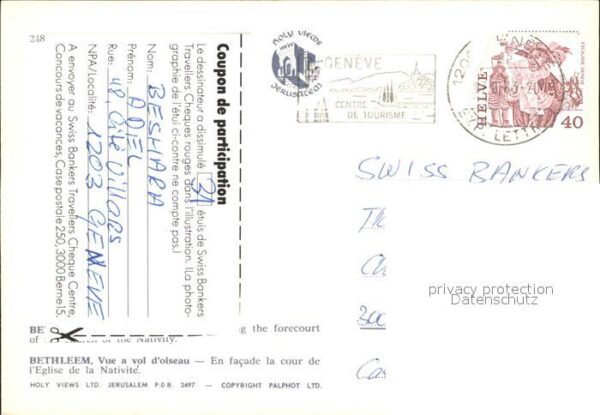 248
Coupon de participation
Le dessinateur a dissimulé 31 étuis de Swiss Bankers
Travellers Cheques rouges dans l'illustration. (La photo-
graphie de l'étui ci-contre ne compte pas.)
Nom: BESHARA
Prénom: ADEL
Rue: 48, Cité Villars
NPA/Localité: 1203 GENEVE
A envoyer au Swiss Bankers Travellers Cheque Centre,
Concours de vacances, Case postale 250, 3000 Berne 15.
HOLY VIEWS
JERUSALEM
GENÈVE
CENTRE
DE TOURISME
HELVETIA
40
SWISS BANKERS
Th
Ch
300
Cas
privacy protection
Datenschutz
BE
g the forecourt
of
the Nativity.
BETHLEEM, Vue a vol d'oiseau — En façade la cour de
l'Eglise de la Nativité.
HOLY VIEWS LTD. JERUSALEM P.O.B. 2497 — COPYRIGHT PALPHOT LTD.